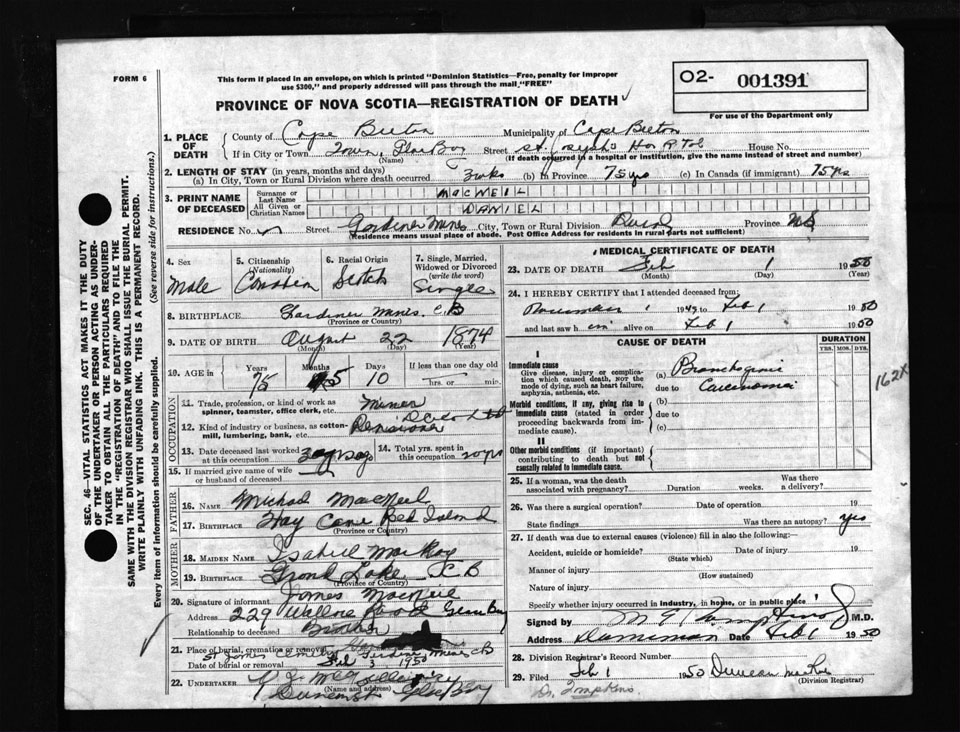 FORM 6
This form if placed in an envelope, on which is printed "Dominion Statistics—Free, penalty for improper
use $300," and properly addressed will pass through the mail "FREE"
O2- 001391
For use of the Department only
PROVINCE OF NOVA SCOTIA—REGISTRATION OF DEATH
1. PLACE OF DEATH
County of Cape Breton Municipality of Cape Breton
If in City or Town Town, Glace Bay (Name) Street St. Joseph's Hospital House No.
(If death occurred in a hospital or institution, give the name instead of street and number)
2. LENGTH OF STAY (in years, months and days)
(a) In City, Town or Rural Division where death occurred 3 wks (b) In Province 75 yrs (c) In Canada (if immigrant) 75 yrs
3. PRINT NAME OF DECEASED
Surname or Last Name MACNEIL
All Given or Christian Names DANIEL
RESIDENCE No. Street Gardiner Mines City, Town or Rural Division Province N.S.
(Residence means usual place of abode. Post Office Address for residents in rural parts not sufficient)
4. Sex Male
5. Citizenship (Nationality) Canadian
6. Racial Origin Scotch
7. Single, Married, Widowed or Divorced (write the word) Single
8. BIRTHPLACE Gardiner Mines, C.B (Province or Country)
9. DATE OF BIRTH August (Month) 22 (Day) 1874 (Year)
10. AGE in Years 75 Months 5 Days 10 If less than one day old hrs. or min.
OCCUPATION
11. Trade, profession, or kind of work as spinner, teamster, office clerk, etc. Miner
12. Kind of industry or business, as cotton-mill, lumbering, bank, etc. Pensioner
13. Date deceased last worked at this occupation
14. Total yrs. spent in this occupation
15. If married give name of wife or husband of deceased
FATHER
16. Name Michael MacNeil
17. BIRTHPLACE Red Island (Province or Country)
MOTHER
18. MAIDEN NAME Isabel MacKay
19. BIRTHPLACE Grand Lake C.B (Province or Country)
20. Signature of informant James MacNeil
Address 229 Wallace Road Glace Bay
Relationship to deceased Brother
21. Place of burial, cremation or removal St James Cemetery Gardiner Mines CB
Date of burial or removal Feb 3 1950
22. UNDERTAKER (Name and address) Glace Bay
MEDICAL CERTIFICATE OF DEATH
23. DATE OF DEATH Feb (Month) 1 (Day) 1950 (Year)
24. I HEREBY CERTIFY that I attended deceased from:
November 1 1949 to Feb 1 1950
and last saw him alive on Feb 1 1950
CAUSE OF DEATH
DURATION
YRS. MOS. DYS.
I
Immediate cause
Give disease, injury or complication which caused death, NOT the mode of dying, such as heart failure, asphyxia, asthenia, etc.
(a) Bronchogenic
due to Carcinoma
162X
Morbid conditions, if any, giving rise to immediate cause (stated in order proceeding backwards from immediate cause).
(b)
due to
(c)
II
Other morbid conditions (if important) contributing to death but not causally related to immediate cause.
25. If a woman, was the death associated with pregnancy? Duration weeks. Was there a delivery?
26. Was there a surgical operation? Date of operation 19
State findings Was there an autopsy? yes
27. If death was due to external causes (violence) fill in also the following:
Accident, suicide or homicide? (State which) Date of injury 19
Manner of injury (How sustained)
Nature of injury
Specify whether injury occurred in industry, in home, or in public place
Signed by M.D.
Address Date Feb 1 1950
28. Division Registrar's Record Number
29. Filed Feb 1 1950 Duncan (Division Registrar)
Dr. Tompkins
SEC. 46—VITAL STATISTICS ACT MAKES IT THE DUTY
OF THE UNDERTAKER OR PERSON ACTING AS UNDER-
TAKER TO OBTAIN ALL THE PARTICULARS REQUIRED
IN THE "REGISTRATION OF DEATH" AND TO FILE THE
SAME WITH THE DIVISION REGISTRAR WHO SHALL ISSUE THE BURIAL PERMIT.
WRITE PLAINLY WITH UNFADING INK. THIS IS A PERMANENT RECORD.
Every item of information should be carefully supplied. (See reverse side for instructions.)